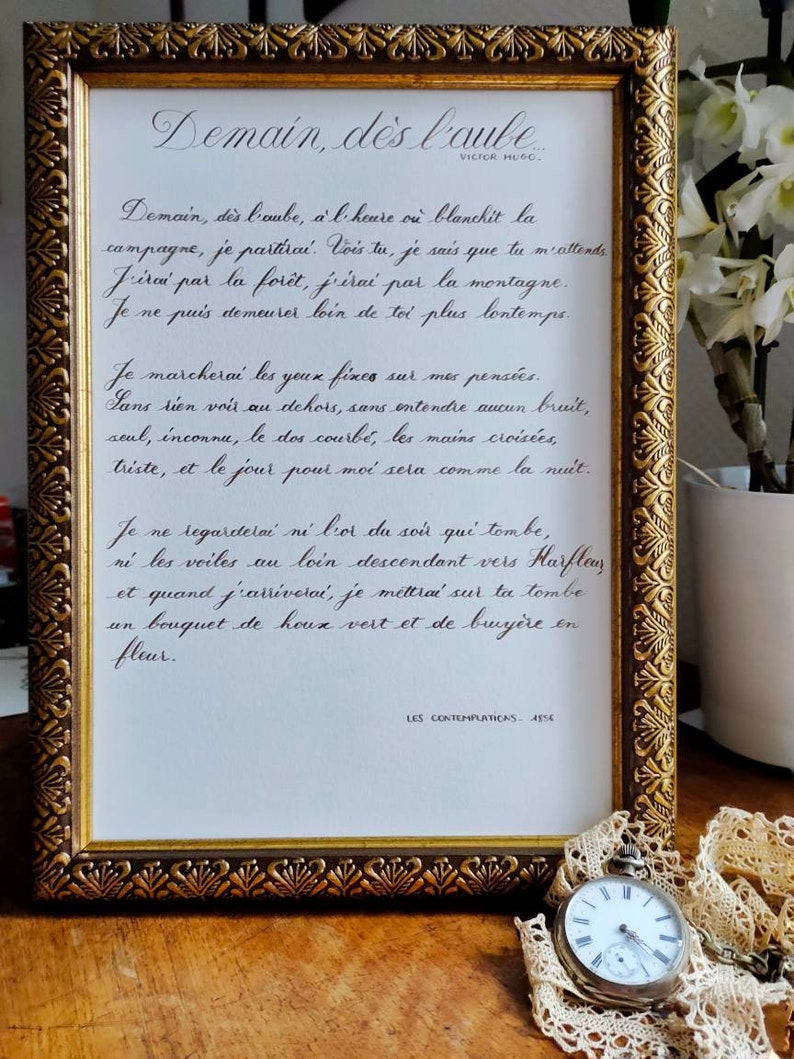 Demain, dès l'aube...
VICTOR HUGO.
Demain, dès l'aube, à l'heure où blanchit la
campagne, je partirai. Vois-tu, je sais que tu m'attends.
J'irai par la forêt, j'irai par la montagne.
Je ne puis demeurer loin de toi plus lontemps.
Je marcherai les yeux fixes sur mes pensées.
Sans rien voir au dehors, sans entendre aucun bruit,
seul, inconnu, le dos courbé, les mains croisées,
triste, et le jour pour moi sera comme la nuit.
Je ne regarderai ni l'or du soir qui tombe,
ni les voiles au loin descendant vers Harfleur,
et quand j'arriverai, je mettrai sur ta tombe
un bouquet de houx vert et de bruyère en
fleur.
LES CONTEMPLATIONS_ 1856